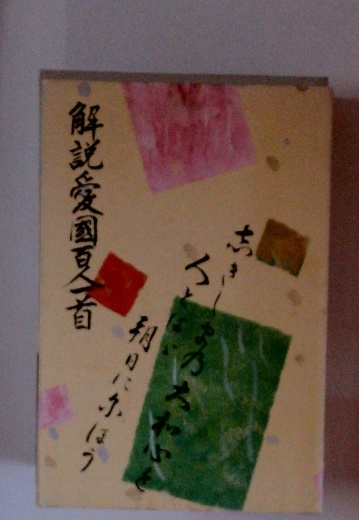 解説愛國百人一首
志きしまの大和心を
人とはゞ
朝日に尓ほう